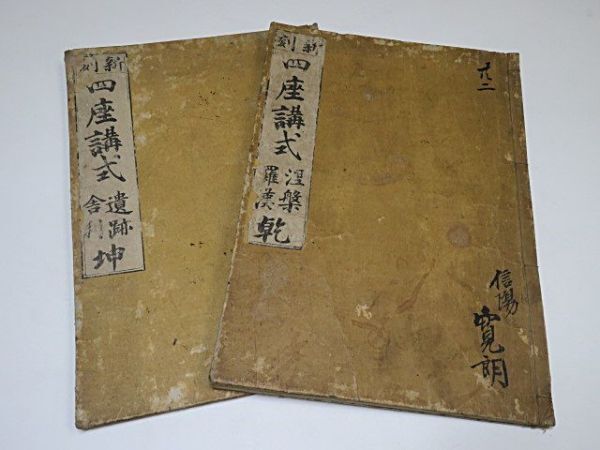 新刻
四座講式
涅槃
羅漢
乾
廿二
信陽
寛朗
新刻
四座講式
遺跡
舎利
坤